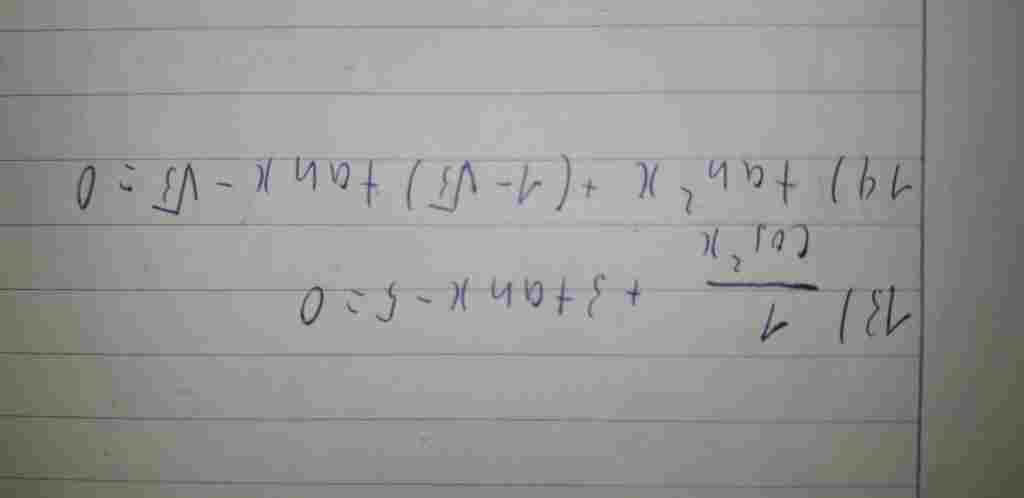 13) 1/cos²x + 3tan x - 5 = 0
14) tan²x + (1 - √3) tan x - √3 = 0